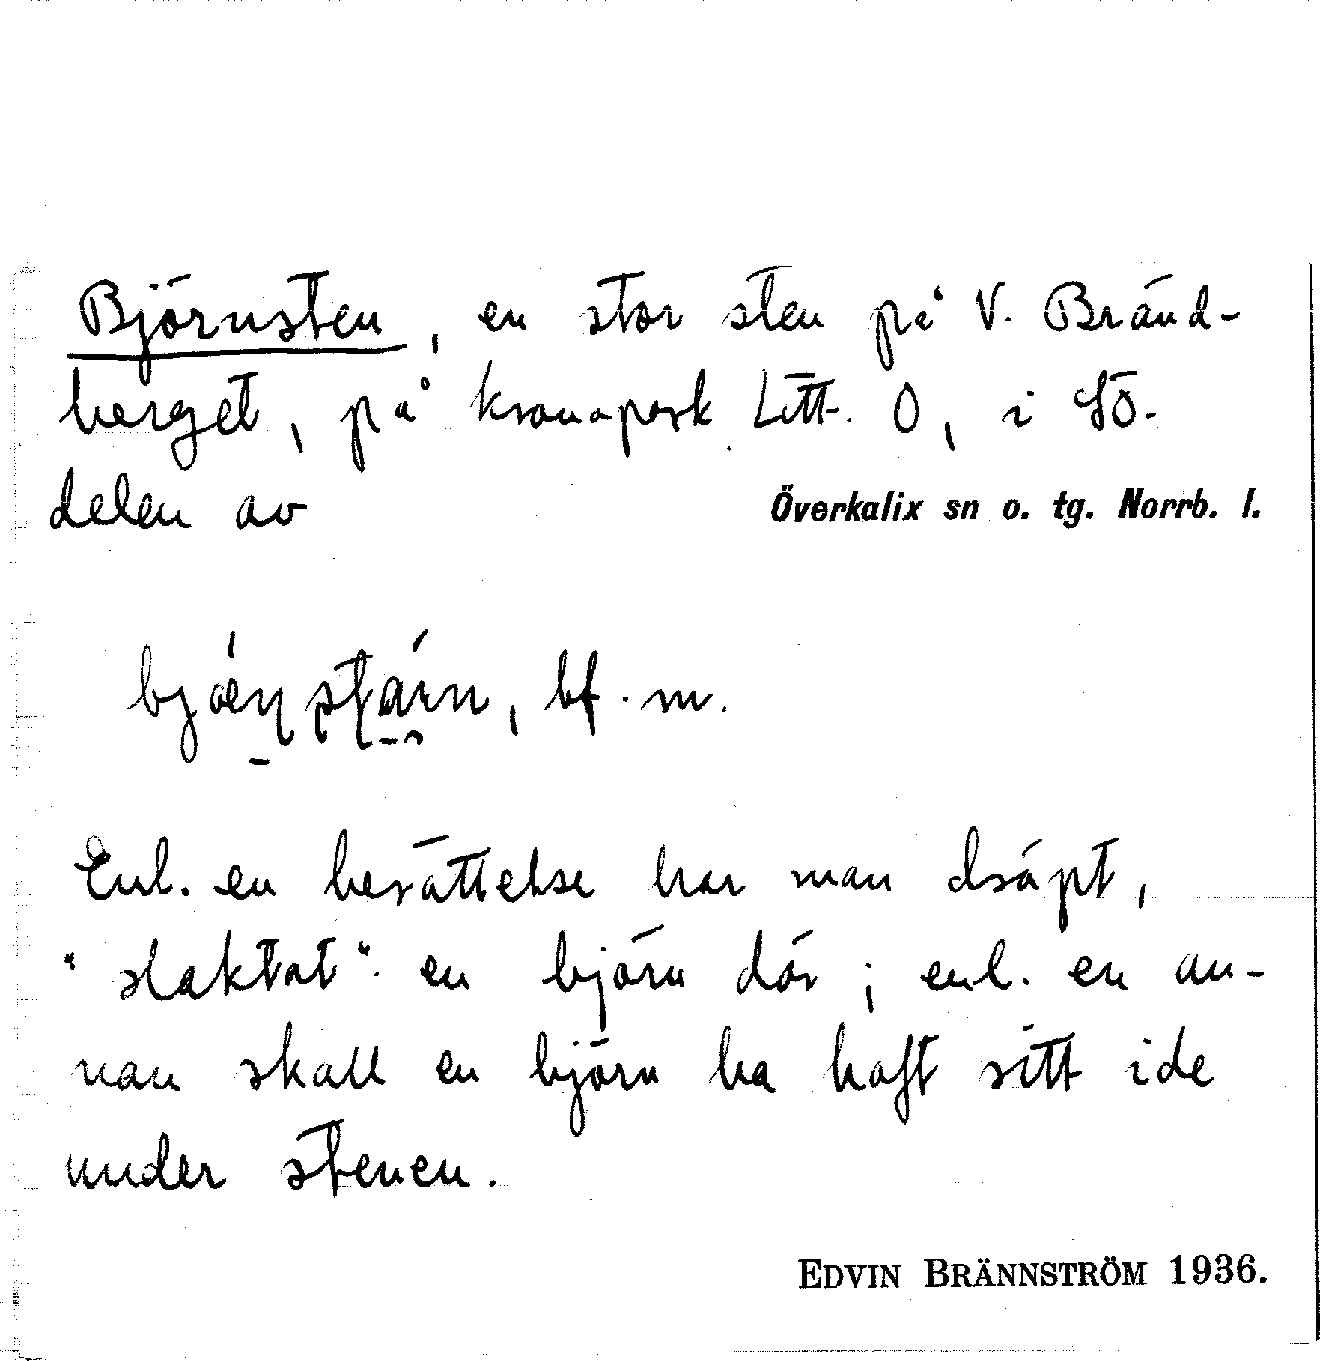 Björnsten, en stor sten på V. Bränd-
berget, på kronopark Litt. O, i SÖ-
delen av Överkalix sn o. tg. Norrb. l.
bf. m.
Enl. en berättelse har man dräpt,
"slaktat" en björn där; enl. en an-
nan skall en björn ha haft sitt ide
under stenen.
EDVIN BRÄNNSTRÖM 1936.